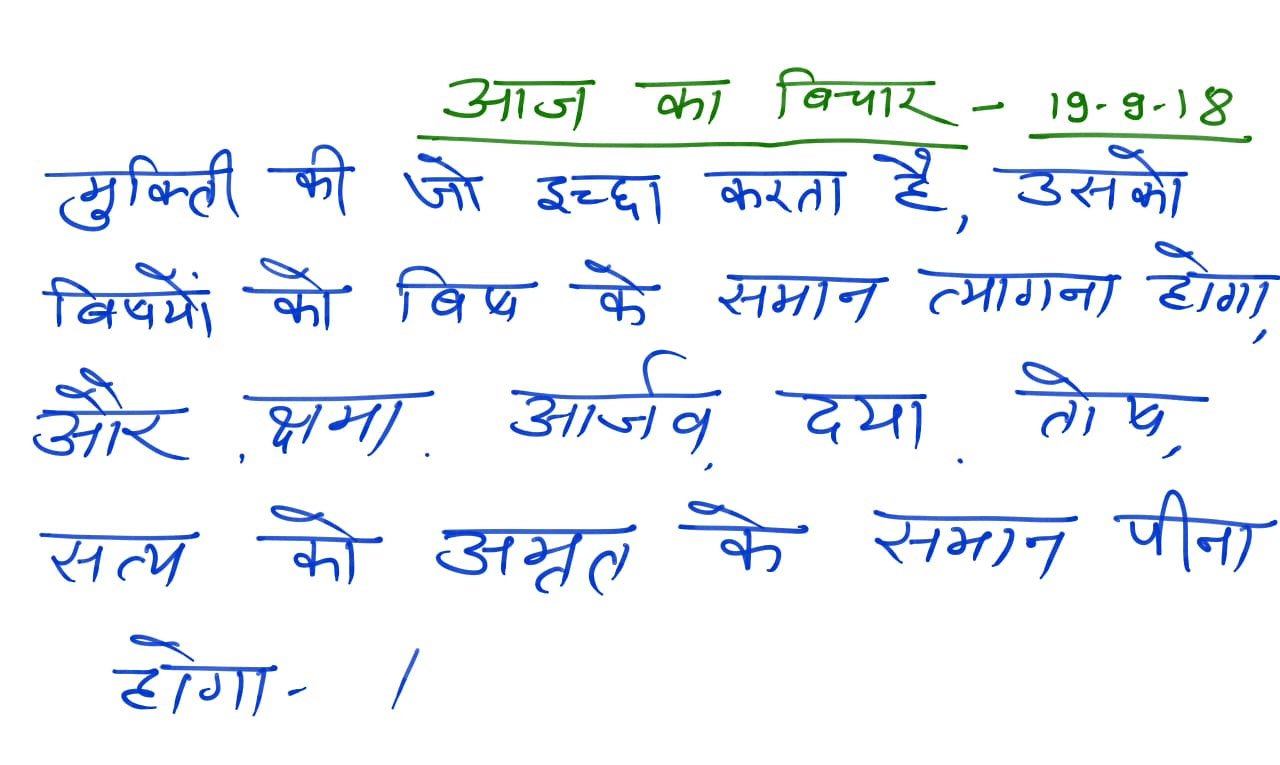 आज का बिचार - 19-9-18
मुक्ति की जो इच्छा करता है, उसको
बिषयों को बिष के समान त्यागना होगा,
और , क्षमा . आर्जव, दया . तोष,
सत्य को अमृत के समान पीना
होगा - /